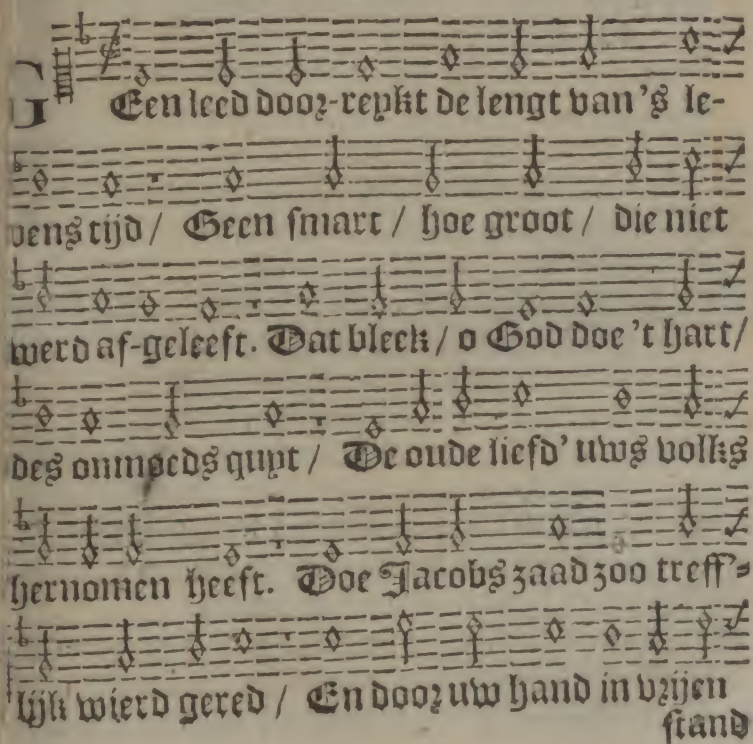 GEen leed door-reykt de lengt van 's le-
vens tijd / Geen smart / hoe groot / die niet
werd af-geleeft. Dat bleek / o God doe 't hart /
des onmoeds quyt / De oude liefd' uws volks
hernomen heeft. Doe Jacobs zaad zoo treff-
lijk wierd gered / En door uw hand in vrijen
stand